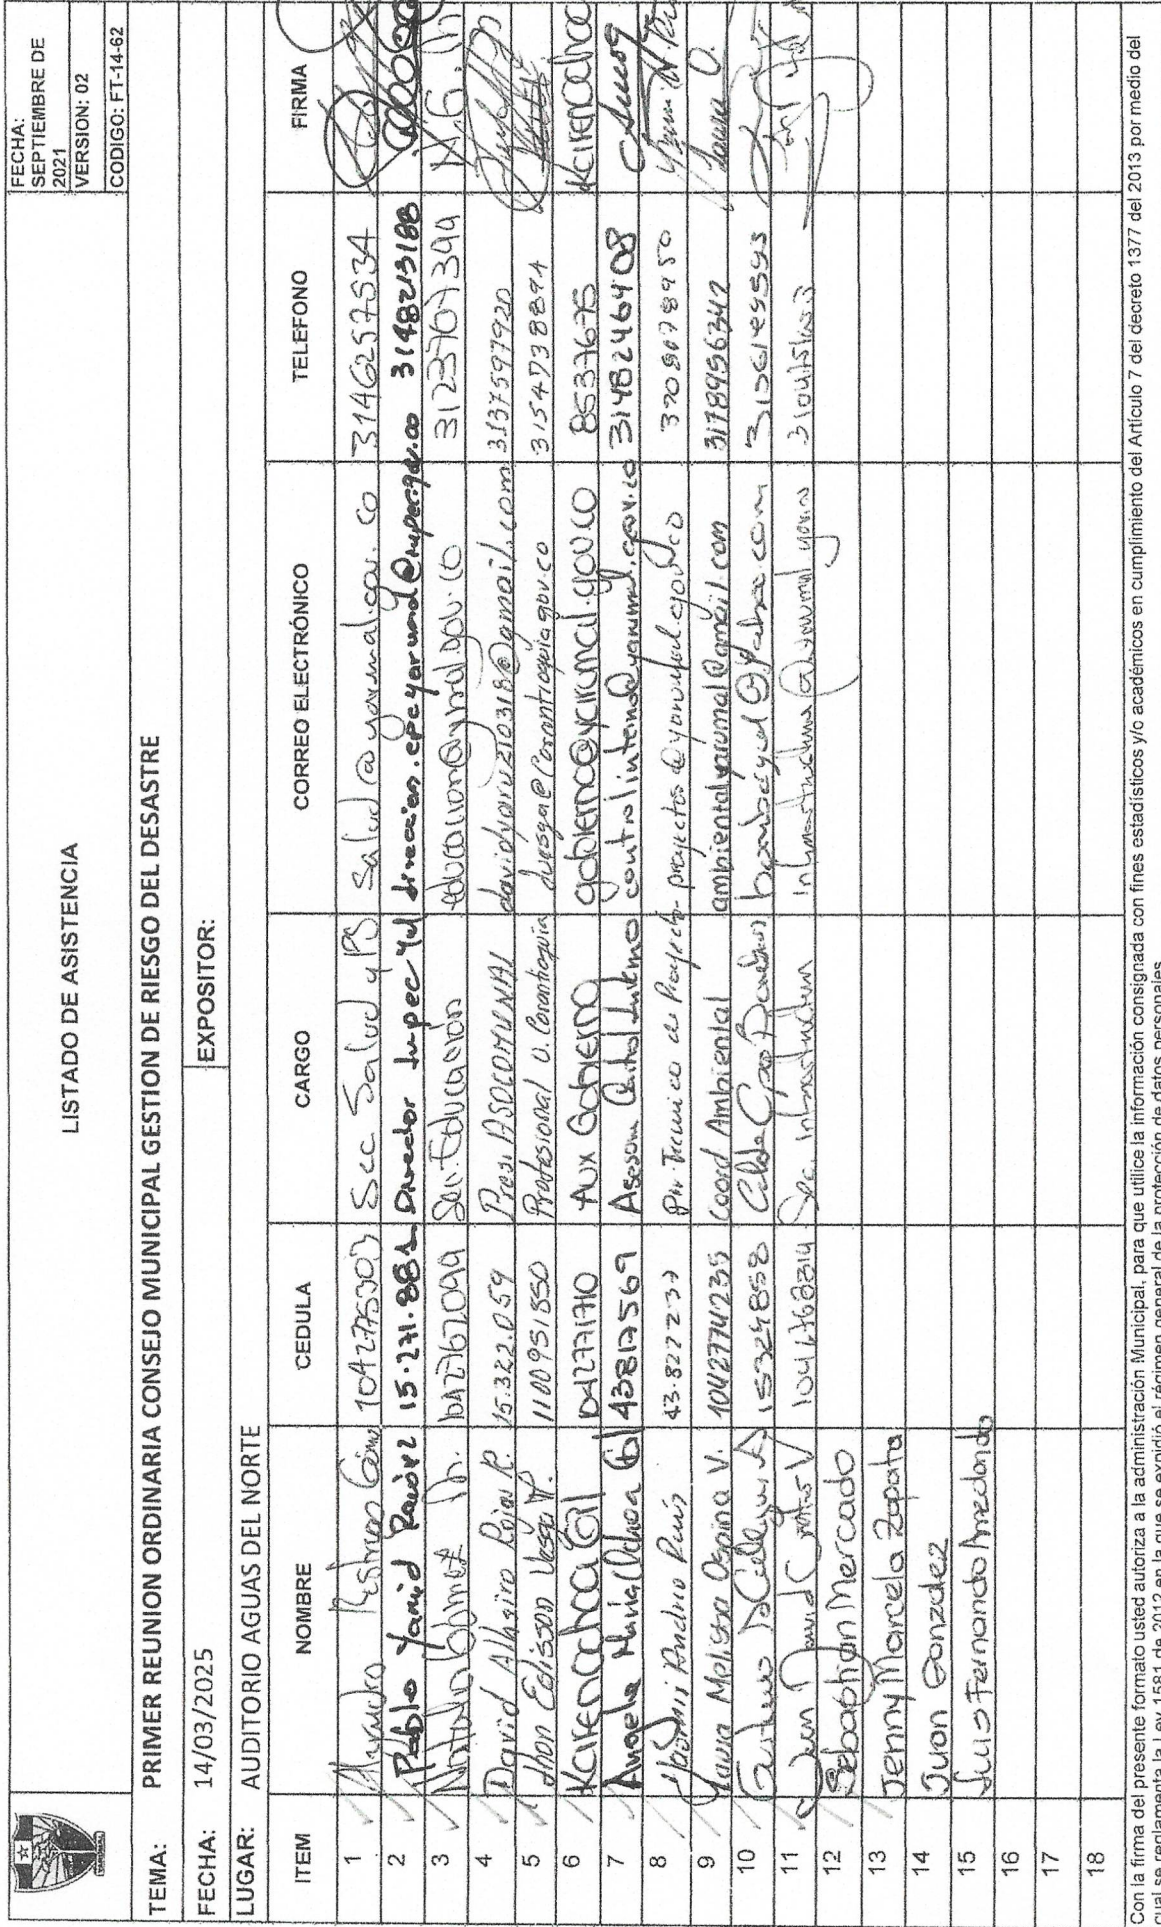 LISTADO DE ASISTENCIA
FECHA:
SEPTIEMBRE DE
2021
VERSION: 02
CODIGO: FT-14-62
TEMA: PRIMER REUNION ORDINARIA CONSEJO MUNICIPAL GESTION DE RIESGO DEL DESASTRE
FECHA: 14/03/2025 EXPOSITOR:
LUGAR: AUDITORIO AGUAS DEL NORTE
ITEM NOMBRE CEDULA CARGO CORREO ELECTRÓNICO TELEFONO FIRMA
1 Alejandro Restrepo 1042775303 Sec Salud y PS Salud@yarumal.gov.co 3146257534
2 Pablo Yamid Ramírez 15.271.881 Director Inpec Yul direccion.epcyarumal@inpec.gov.co 3148213188
3 Natalia Gómez 1042762099 Sec. Educación 3123707394
4 David Albeiro Rojas R. 15.322.059 Pres. ASOCOMUNAL 3137597920
5 Jhon Edison Vesga 1100951550 Profesional U. Corantioquia jvesga@Corantioquia.gov.co 3154738894
6 Karen ochoa Gil 1042771710 Aux Gobierno gobierno@yarumal.gov.co 8537675 Karen ochoa
7 Angela María Ochoa Gil 43817569 Asesora Control Interno controlinterno@yarumal.gov.co 3148246408
8 Andrea Ruiz 43.822237 Técnico de Proyectos proyectos@yarumal.gov.co
9 Laura Melissa Ospina V. 1042774235 Coord Ambiental ambientalyarumal@gmail.com 3178956342 Laura O.
10 15329858
11 Juan David V Sec. Infraestructura infraestructura@yarumal.gov.co
12 Sebastián Mercado
13 Jenny Marcela Zapata
14 Juan González
15 Luis Fernando Arredondo
16
17
18
Con la firma del presente formato usted autoriza a la administración Municipal, para que utilice la información consignada con fines estadísticos y/o académicos en cumplimiento del Artículo 7 del decreto 1377 del 2013 por medio del
cual se reglamenta la Ley 1581 de 2012 en la que se expidió el régimen general de la protección de datos personales